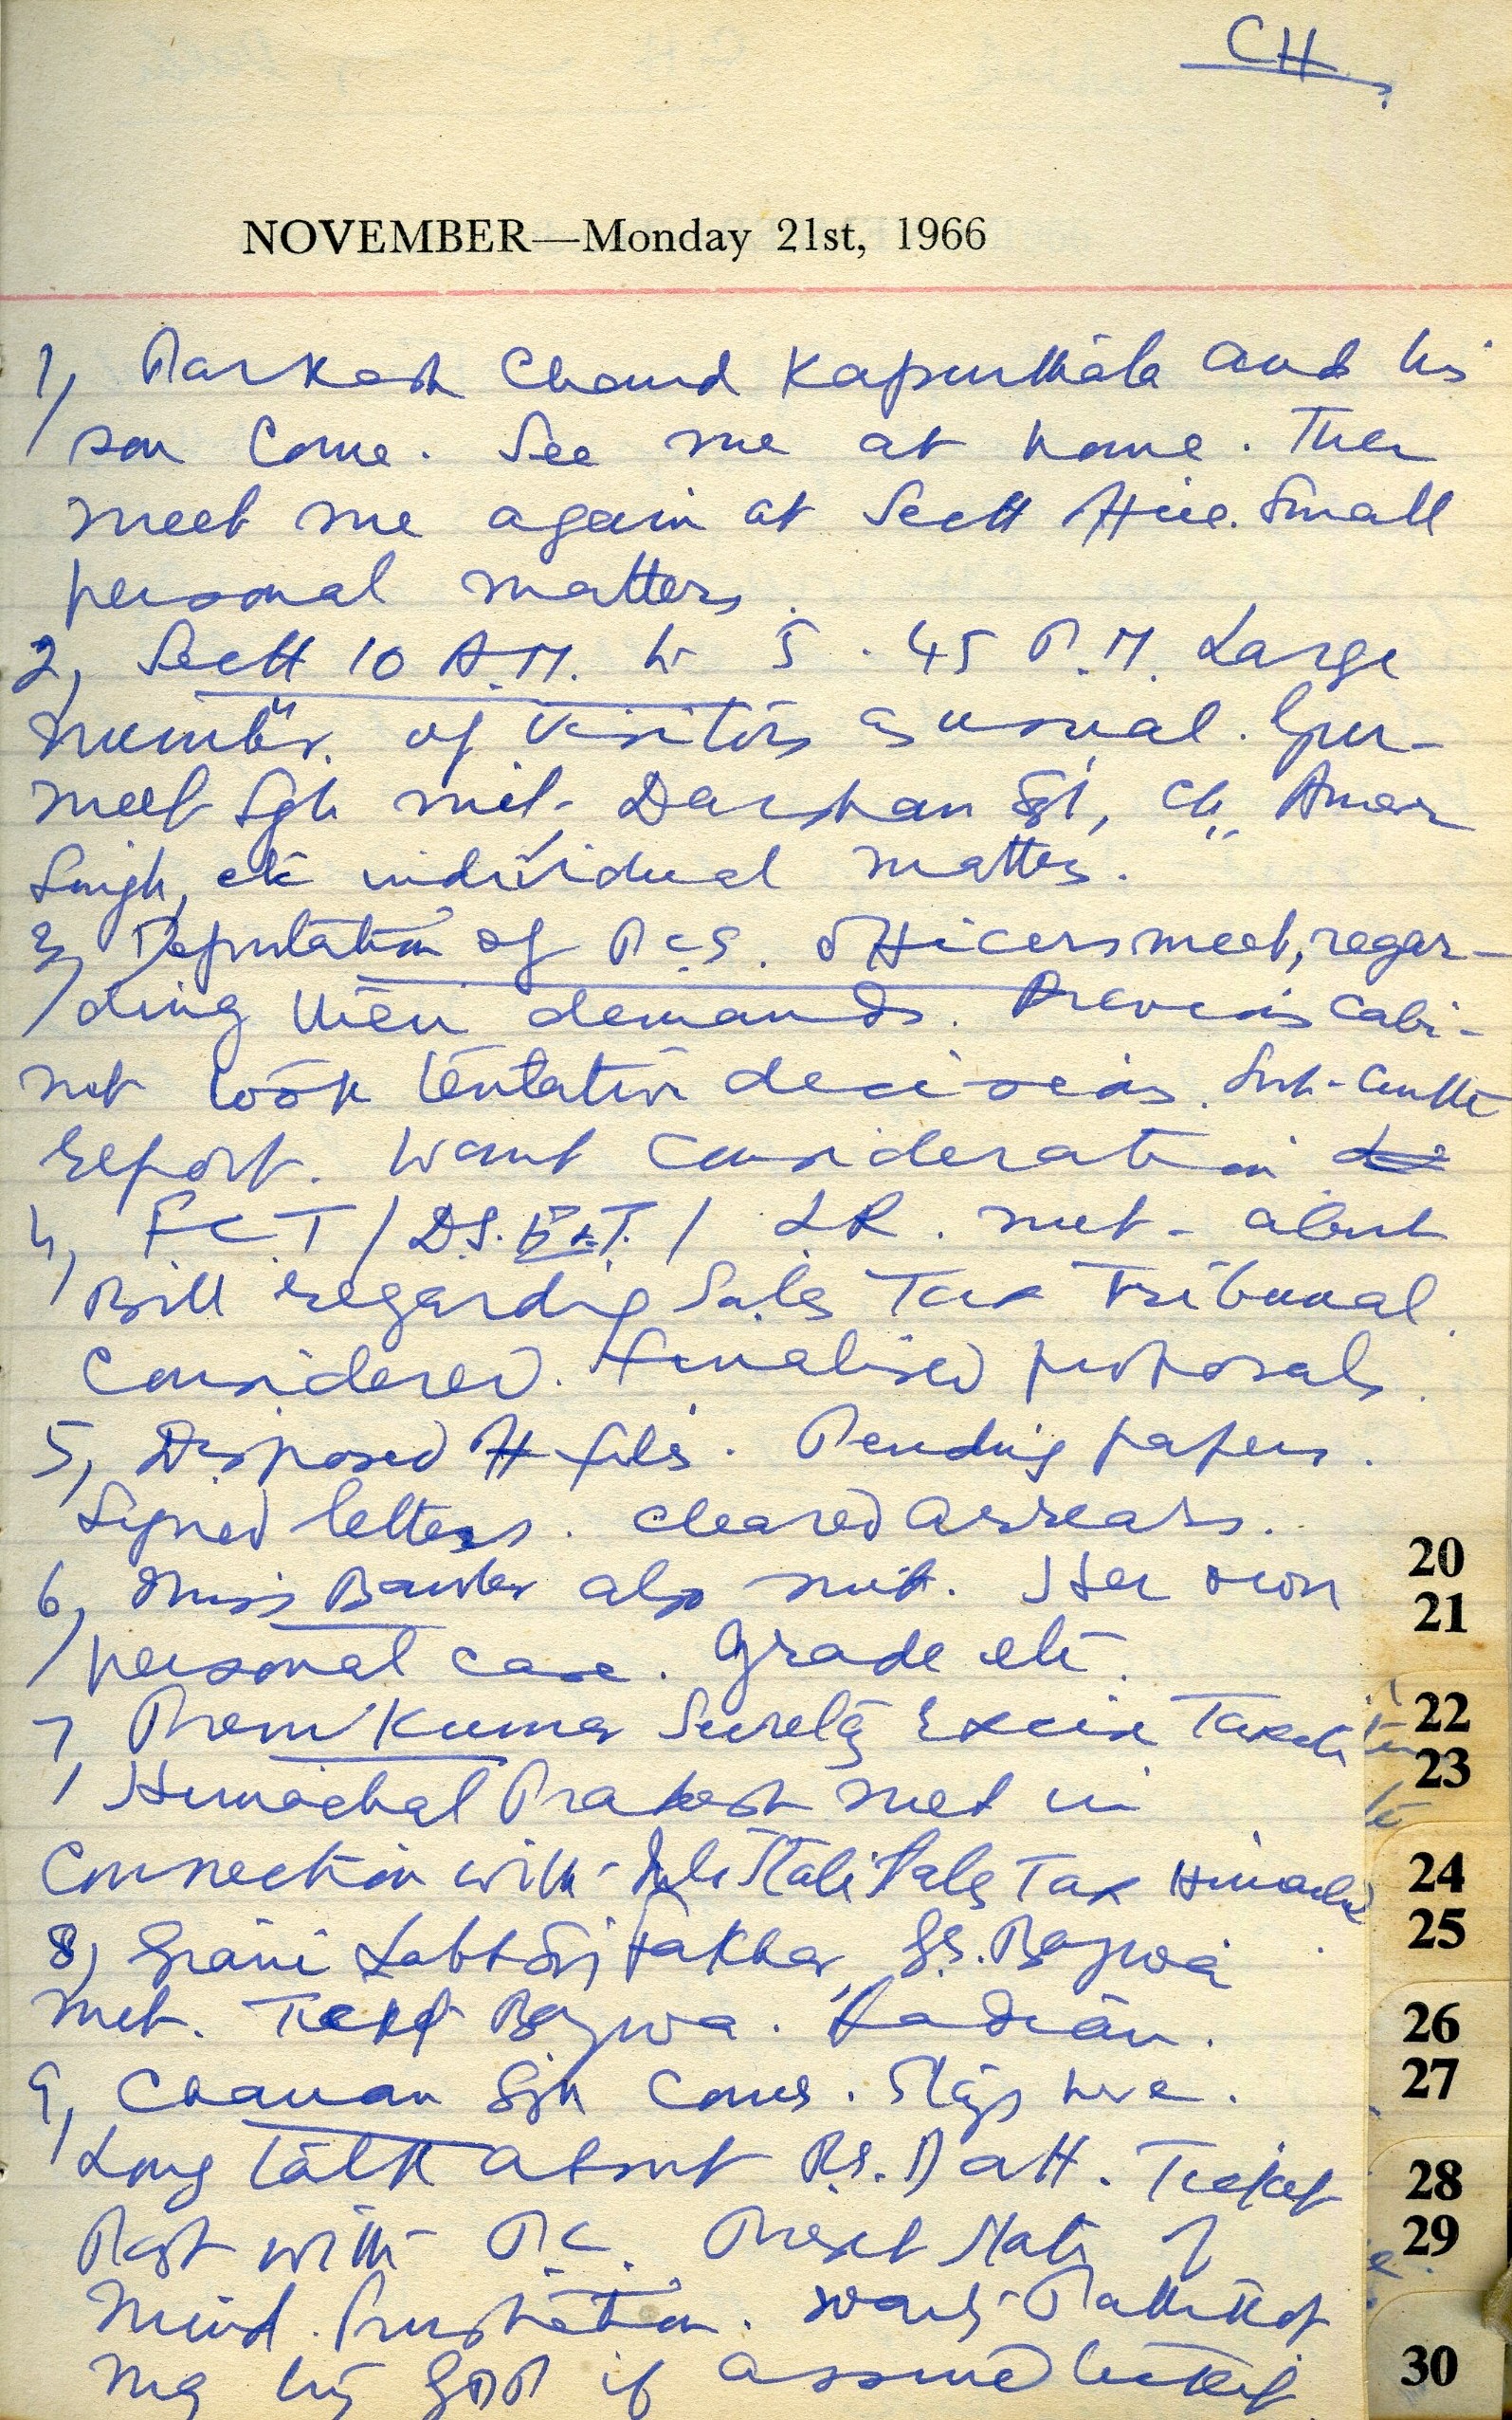 CH
NOVEMBER—Monday 21st, 1966
1, Parkash Chand Kapurthala and his
son come. See me at home. Then
meet me again at Sectt Office. Small
personal matters.
2, Sectt 10 A.M. to 5.45 P.M. Large
number of visitors as usual. Gur-
meet Sgh met. Darshan Sgh, Ch. Amar
Singh, etc individual matters.
3, Deputation of P.C.S. officers meet, regar-
ding their demands. Previous cabi-
net took tentative decisions. Sub-Cmtte
report. Want consideration
4, F.C.T / D.S. E&T. / L.R. met - about
Bill regarding Sales Tax Tribunal
Considered. Finalised proposals.
5, Disposed off files. Pending papers.
Signed letters. cleared arrears.
6, Miss also met. Her own
personal case. Grade etc.
7, Prem Kumar Secretary Excise Taxation
Himachal Pradesh met in
connection with Inter State Sales Tax Himachal
8, Giani Labh Sgh Fakhar, S.S. Bajwa
met. Ticket Bajwa. Kadian.
9, Chanan Sgh comes. Stays here.
Long talk about P.S. Datt. Ticket
Past with P.C. Present State of
Mind. frustration. wants
me try if assured ticket.
20
21
22
23
24
25
26
27
28
29
30